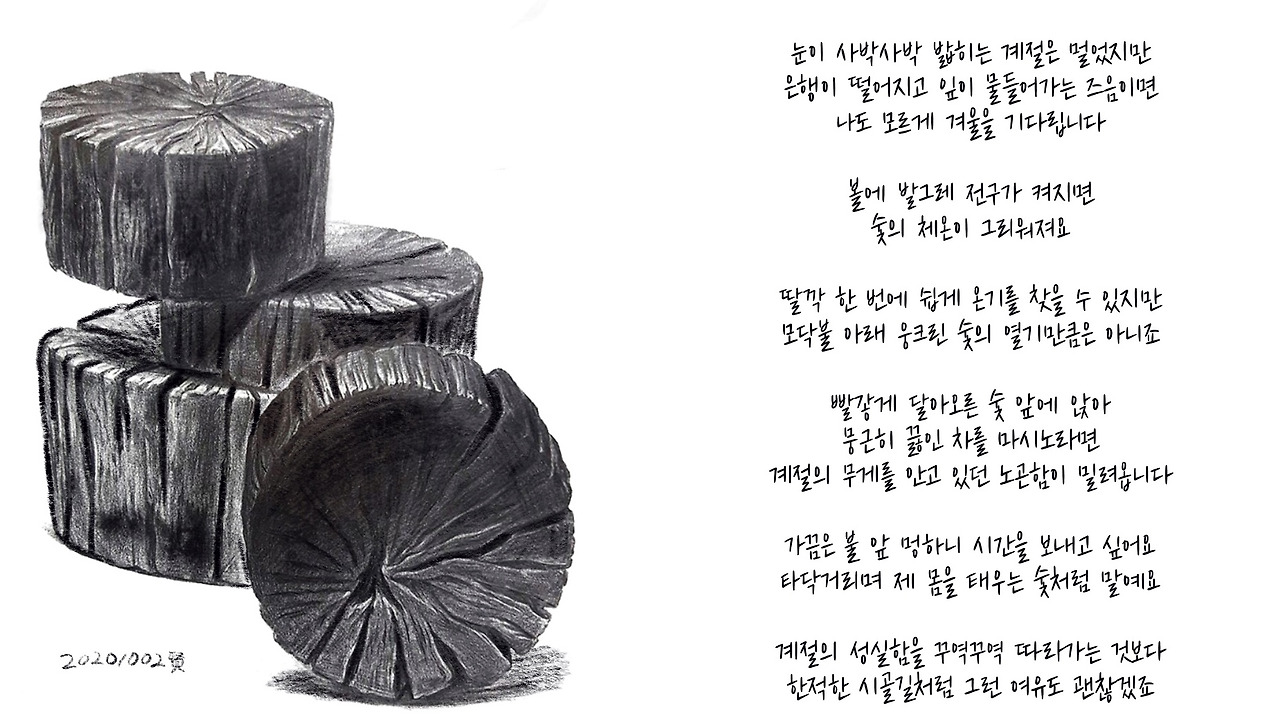 눈이 사박사박 밟히는 계절은 멀었지만
은행이 떨어지고 잎이 물들어가는 즈음이면
나도 모르게 겨울을 기다립니다
볼에 발그레 전구가 켜지면
숯의 체온이 그리워져요
딸깍 한 번에 쉽게 온기를 찾을 수 있지만
모닥불 아래 웅크린 숯의 열기만큼은 아니죠
빨갛게 달아오른 숯 앞에 앉아
뭉근히 끓인 차를 마시노라면
계절의 무게를 안고 있던 노곤함이 밀려옵니다
가끔은 불 앞 멍하니 시간을 보내고 싶어요
타닥거리며 제 몸을 태우는 숯처럼 말예요
계절의 성실함을 꾸역꾸역 따라가는 것보다
한적한 시골길처럼 그런 여유도 괜찮겠죠
20201002賢